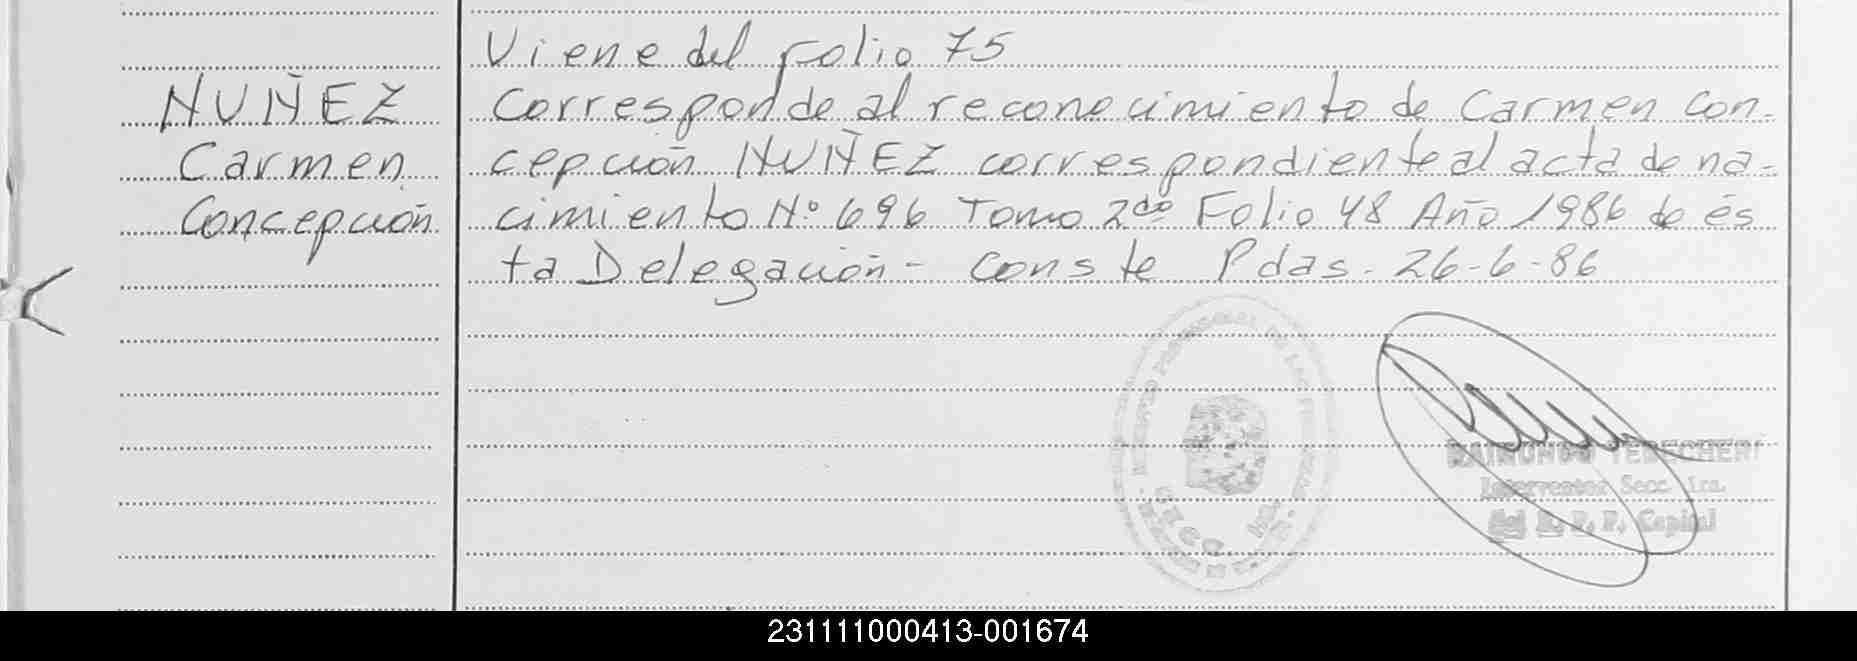 Viene del folio 75
NUÑEZ
Carmen
Concepción
Corresponde al reconocimiento de Carmen Con-
cepción NUÑEZ correspondiente al acta de na-
cimiento Nº 696 Tomo 2do Folio 48 Año 1986 de és
ta Delegación - Conste Pdas. 26-6-86
RAIMUNDO
Interventor Secc. 1ra.
del R. P. P. Capital
231111000413-001674